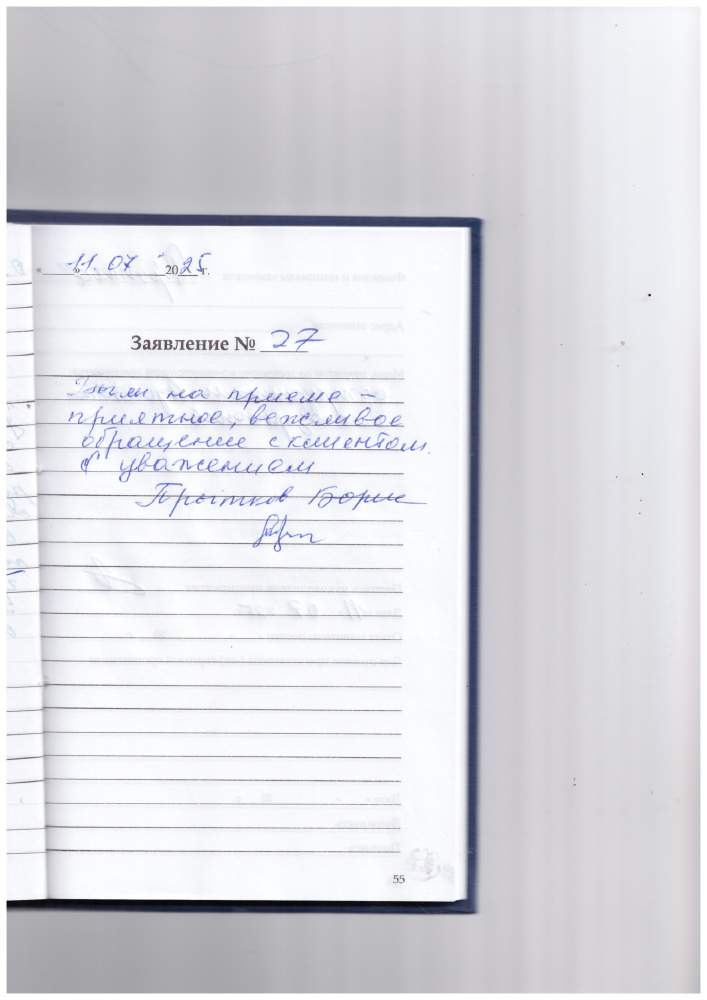 « 11. 07 2025 г.
Заявление № 27
Были на приеме –
приятное, вежливое
обращение с клиентом.
С уважением
Борис
55